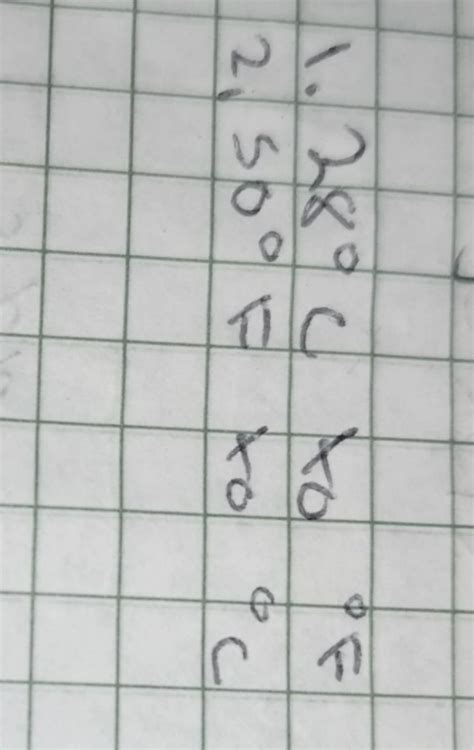 1. 28° C to °F
2. 50° F to °C